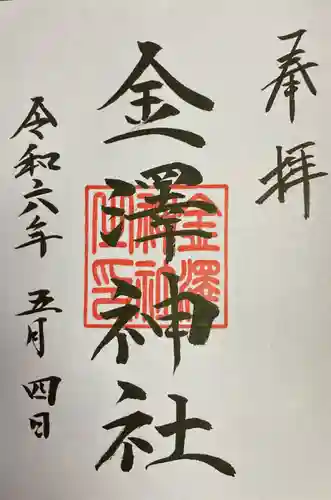 奉拝
金澤神社
金澤神社宮司之印
令和六年 五月 四日